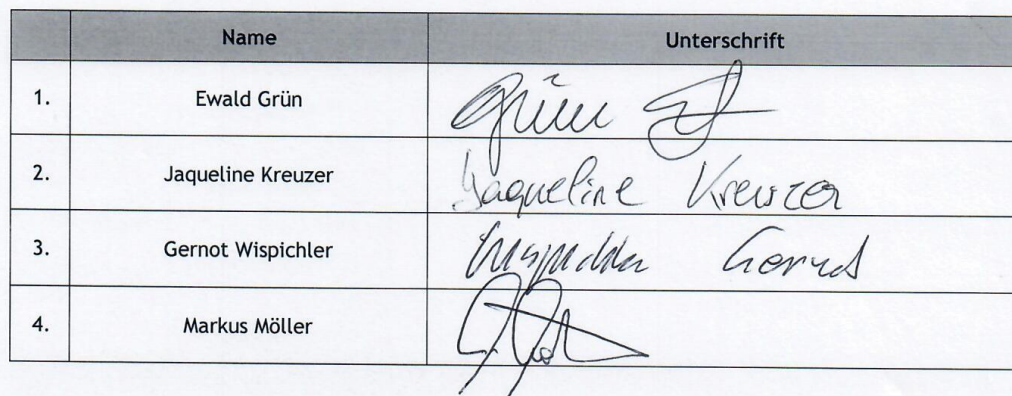 Name Unterschrift
1. Ewald Grün Grün
2. Jaqueline Kreuzer Jaqueline Kreuzer
3. Gernot Wispichler Wispichler Gernot
4. Markus Möller